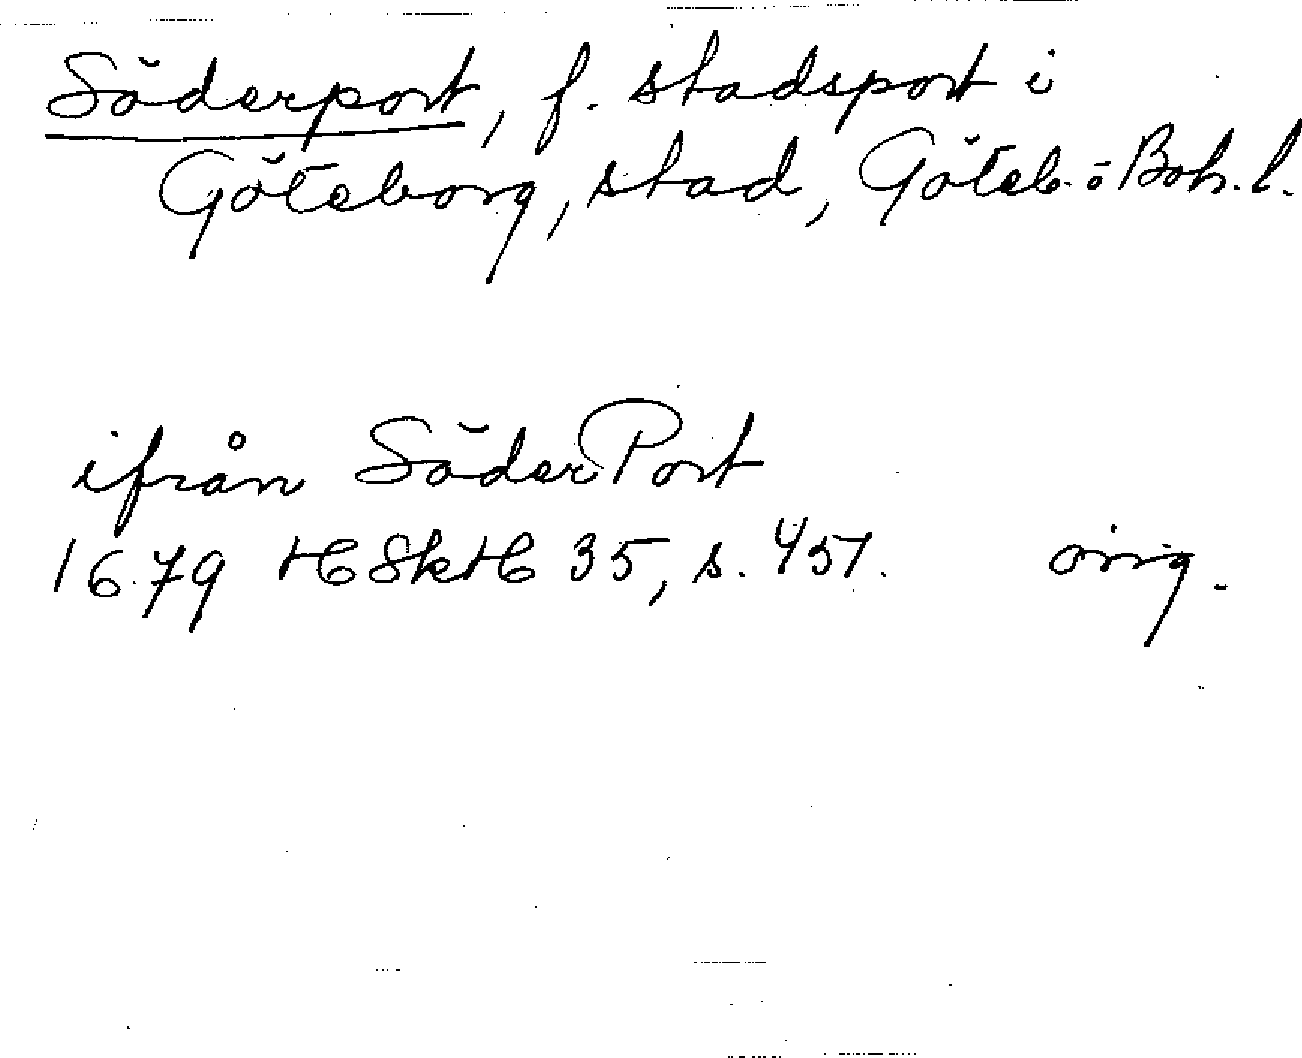 Söderport, f. stadsport i
Göteborg, stad, Göteb. o Boh. l.
ifrån Söder Port
1679 HSkH 35, s. 457. orig.